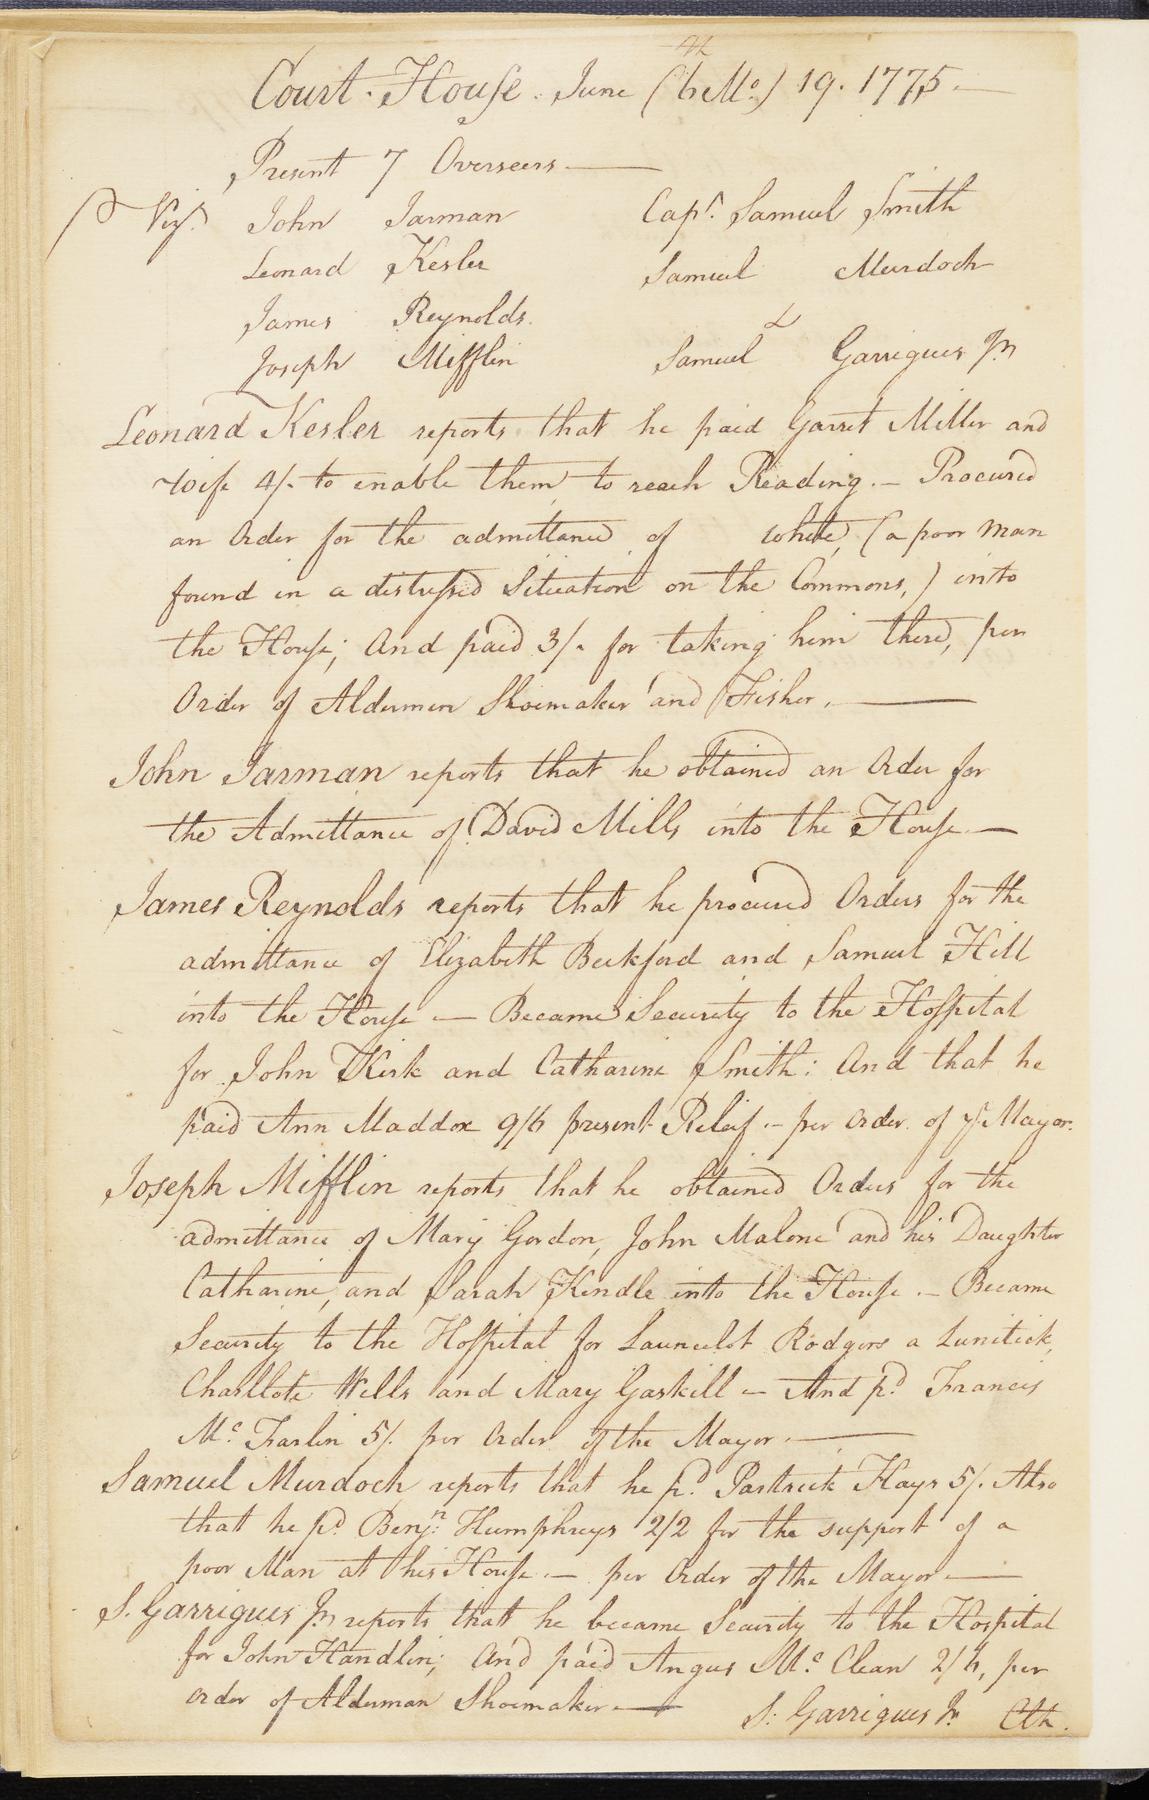 Court-House. June (6th Mo.) 19. 1775.
Present 7 Overseers
Vizt. John Jarman Capt. Samuel Smith
Leonard Kesler Samuel Murdoch
James Reynolds. &
Joseph Mifflin Samuel Garrigues Jr
Leonard Kesler reports that he paid Garret Miller and
wife 4/- to enable them to reach Reading. — Procured
an Order for the admittance of White, (a poor man
found in a distressed Situation on the Commons,) into
the House; And paid 3/- for taking him there, per
Order of Aldermen Shoemaker and Fisher.
John Jarman reports that he obtained an Order for
the Admittance of David Mills into the House. —
James Reynolds reports that he procured Orders for the
admittance of Elizabeth Beckford and Samuel Hill
into the House — Became Security to the Hospital
for John Kirk and Catharine Smith: And that he
paid Ann Maddox 9/6 present Releif — per order of ye Mayor.
Joseph Mifflin reports that he obtained Orders for the
admittance of Mary Gordon, John Malone and his Daughter
Catharine, and Sarah Kindle into the House. — Became
Security to the Hospital for Launcelot Rodgers a Lunitick,
Charllote Wells and Mary Gaskill — And pd. Francis
Mc. Farlin 5/. per Order of the Mayor.
Samuel Murdoch reports that he pd. Partrick Hays 5/. Also
that he pd. Benjn. Humphreys 2/2 for the support of a
poor Man at his House. — per Order of the Mayor —
S. Garrigues Jr reports that he became Security to the Hospital
for John Handlin; And paid Angus Mc. Clean 2/6, per
order of Alderman Shoemaker —
S: Garrigues Jr. Clk.